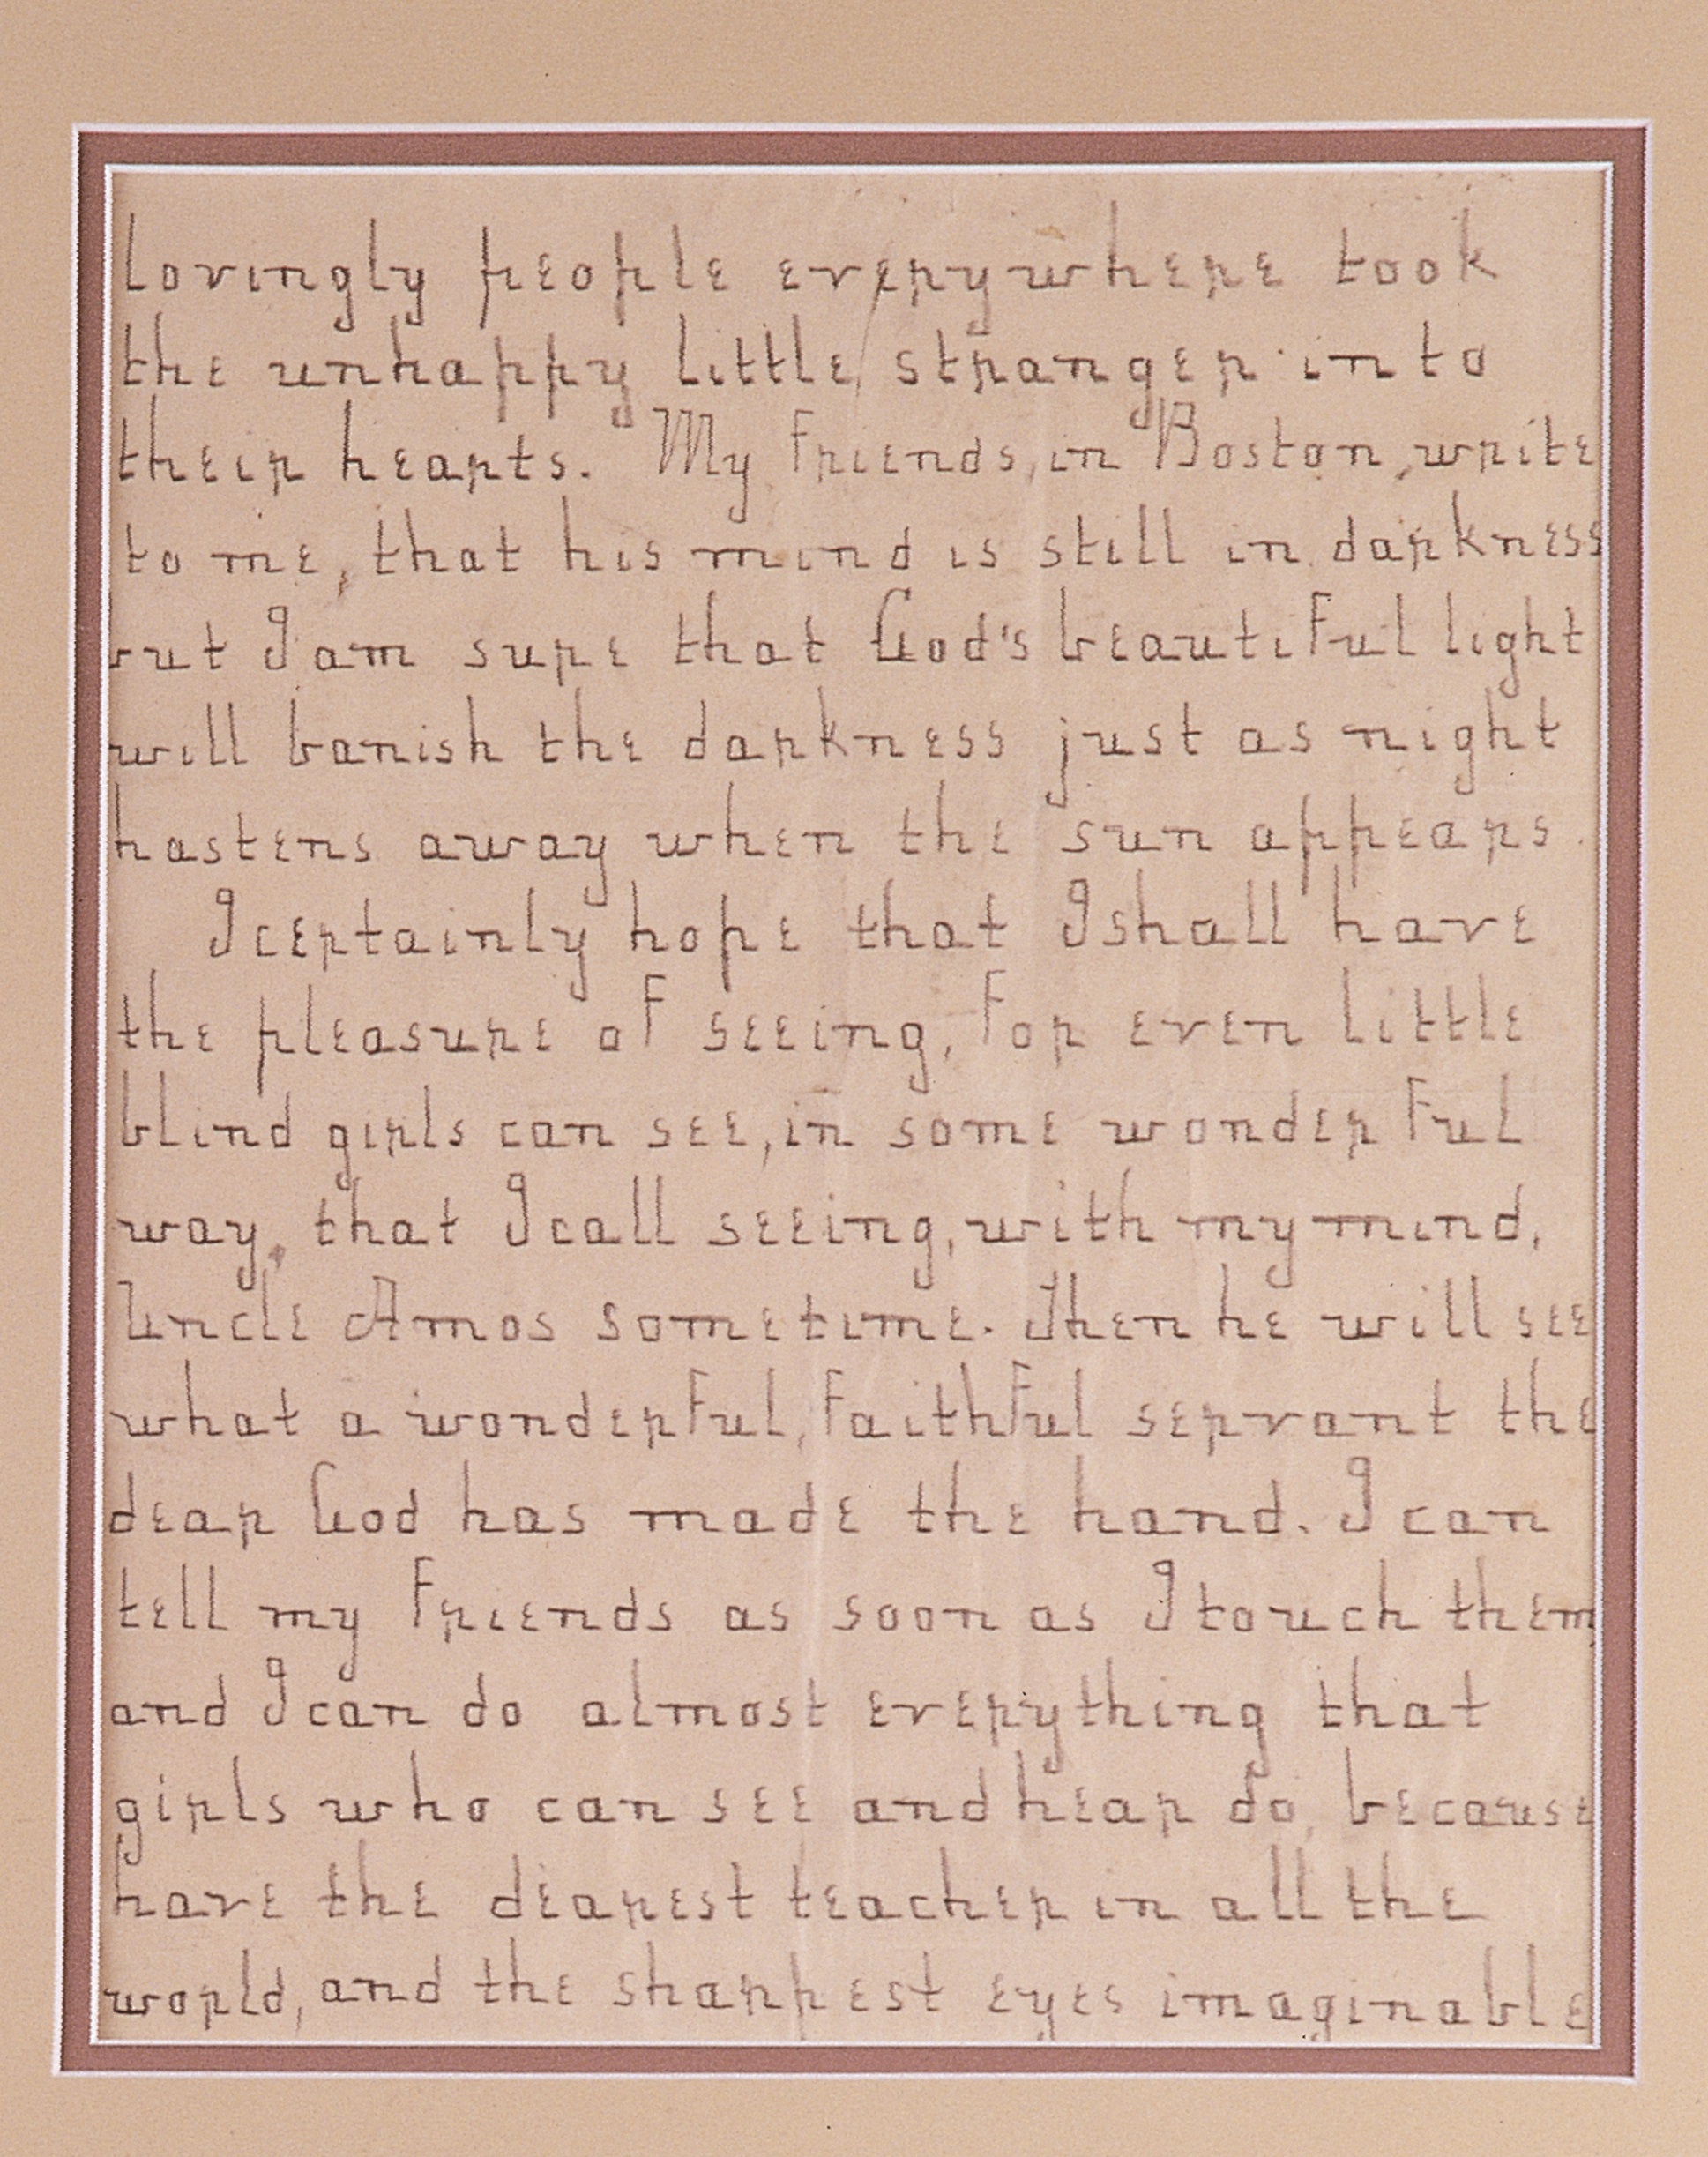 lovingly people everywhere took
the unhappy little stranger into
their hearts. My friends, in Boston, write
to me, that his mind is still in darkness
but I am sure that God's beautiful light
will banish the darkness just as night
hastens away when the sun appears.
I certainly hope that I shall have
the pleasure of seeing, for even little
blind girls can see, in some wonderful
way, that I call seeing, with my mind,
Uncle Amos sometime. Then he will see
what a wonderful, faithful servant the
dear God has made the hand. I can
tell my friends as soon as I touch them
and I can do almost everything that
girls who can see and hear do, because
have the dearest teacher in all the
world, and the sharpest eyes imaginable